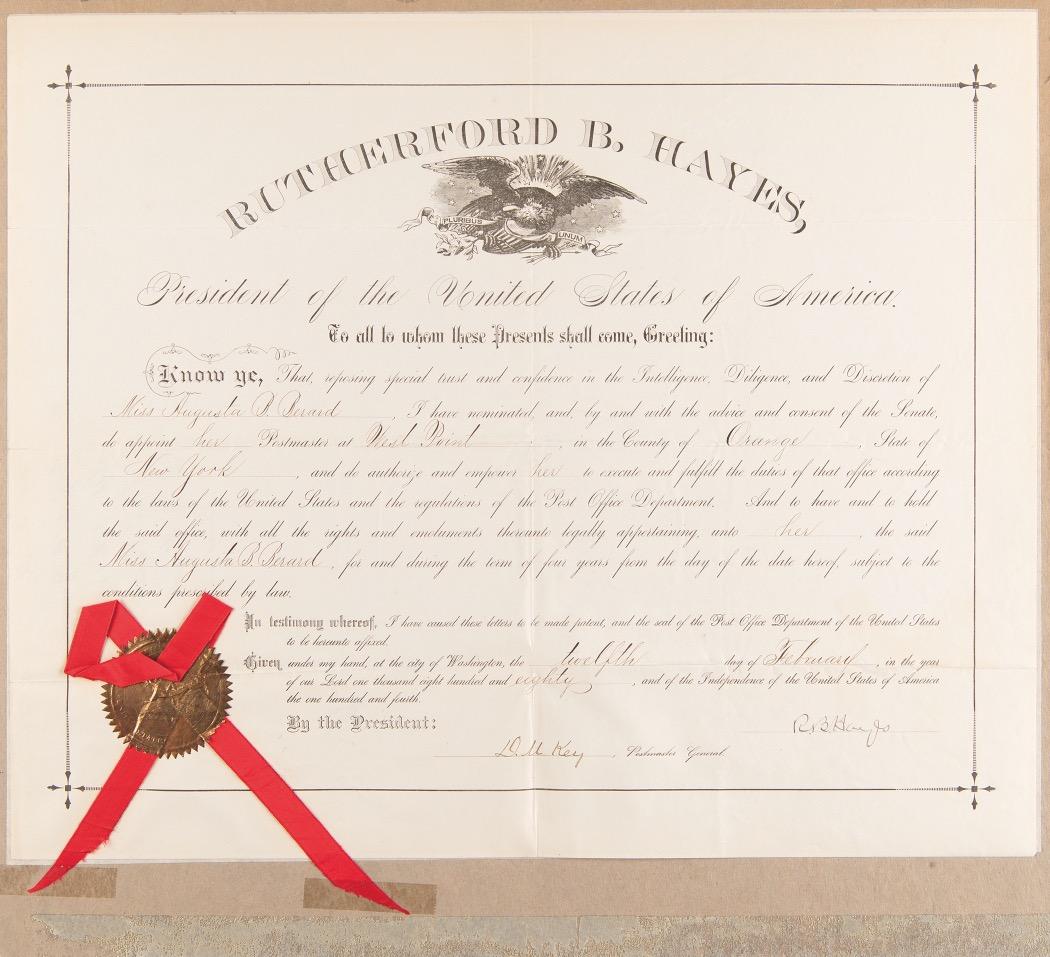 RUTHERFORD B. HAYES,
PLURIBUS UNUM
President of the United States of America.
To all to whom these Presents shall come, Greeting:
Know ye, That, reposing special trust and confidence in the Intelligence, Diligence, and Discretion of
Miss Augusta B. Berard, I have nominated, and, by and with the advice and consent of the Senate,
do appoint her Postmaster at West Point, in the County of Orange, State of
New York, and do authorize and empower her to execute and fulfill the duties of that office according
to the laws of the United States and the regulations of the Post Office Department. And to have and to hold
the said office, with all the rights and emoluments thereunto legally appertaining, unto her, the said
Miss Augusta B. Berard, for and during the term of four years from the day of the date hereof, subject to the
conditions prescribed by law.
In testimony whereof, I have caused these letters to be made patent, and the seal of the Post Office Department of the United States
to be hereunto affixed.
Given under my hand, at the city of Washington, the twelfth day of February, in the year
of our Lord one thousand eight hundred and eighty, and of the Independence of the United States of America
the one hundred and fourth.
By the President:
R B Hayes
D. M. Key, Postmaster General.